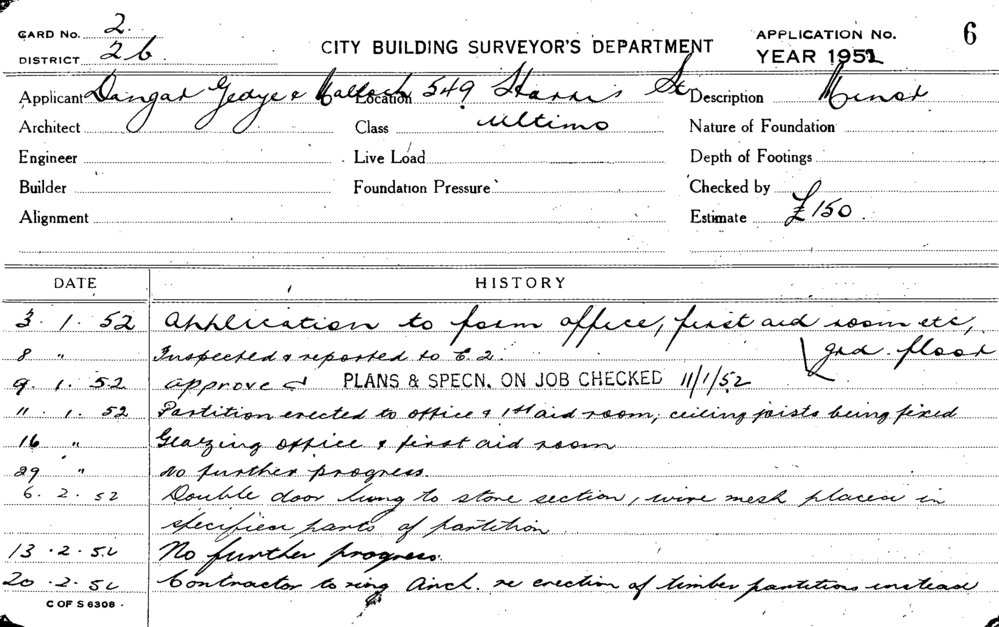 CARD No. 2.
DISTRICT 26
CITY BUILDING SURVEYOR'S DEPARTMENT
APPLICATION No. 6
YEAR 1952
Applicant Dangar Gedye & Malloch Location 549 Harris St Description Minor
Architect Class Ultimo Nature of Foundation
Engineer Live Load Depth of Footings
Builder Foundation Pressure Checked by
Alignment Estimate £150.
DATE HISTORY
3. 1. 52 Application to form office, first aid room etc, grd. floor
8 " Inspected & reported to E.2.
9. 1. 52 approved PLANS & SPECN. ON JOB CHECKED 11/1/52
11. 1. 52 Partition erected to office & 1st aid room, ceiling joists being fixed
16 " Glazing office & first aid room
29 " No further progress.
6. 2. 52 Double door hung to store section, wire mesh placed in
specified parts of partition
13. 2. 52 No further progress.
20. 2. 52 Contractor to ring Arch. re erection of timber partitions instead
C OF S 6308.